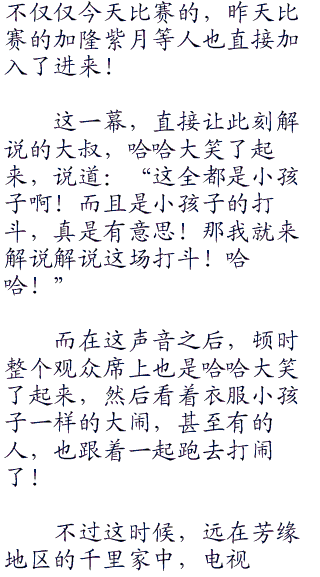 不仅仅今天比赛的，昨天比
赛的加隆紫月等人也直接加
入了进来！
这一幕，直接让此刻解
说的大叔，哈哈大笑了起
来，说道：“这全都是小孩
子啊！而且是小孩子的打
斗，真是有意思！那我就来
解说解说这场打斗！哈
哈！”
而在这声音之后，顿时
整个观众席上也是哈哈大笑
了起来，然后看着衣服小孩
子一样的大闹，甚至有的
人，也跟着一起跑去打闹
了！
不过这时候，远在芳缘
地区的千里家中，电视